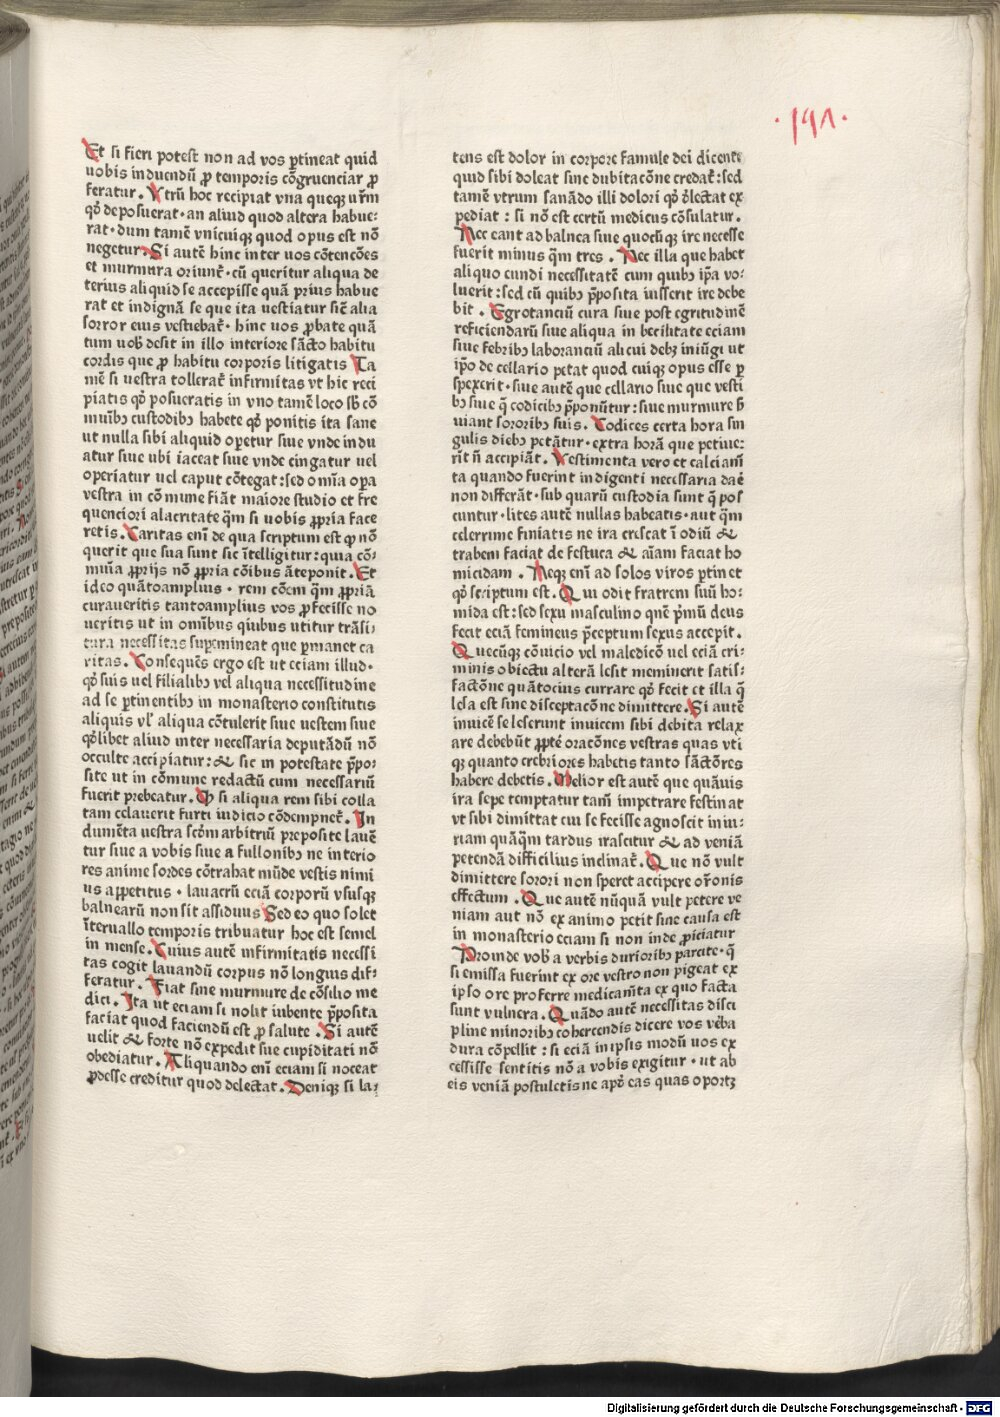 ·191·
Et si fieri potest non ad vos ꝑtineat quid
uobis induendū ꝓ temporis cōgruenciar ꝓ
feratur. Vtrū hoc recipiat vna queqꝫ urm̄
qđ deposuerat· an aliud quod altera habue⸗
rat· dum tamē vnicuiqꝫ quod opus est nō
negetur. Si autē hinc inter uos cōtencōes
et murmura oriunt᷑· cū queritur aliqua de
terius aliquid se accepisse quā prius habue
rat et indignā se que ita uestiatur sic̄ alia
sorror eius vestiebat᷑· hinc uos ꝓbate quā
tum uob̄ desit in illo interiore sācto habitu
cordis que ꝓ habitu corporis litigatis Ta
mē si uestra tollerat᷑ infirmitas vt hic reci
piatis qđ posueratis in vno tamē loco sb̄ cō
muībꝫ custodibꝫ habete qđ ponitis ita sane
ut nulla sibi aliquid oꝑetur siue vnde indu
atur siue ubi iaceat siue vnde cingatur uel
operiatur uel caput cōtegat: sed om̄ia oꝑa
vestra in cōmune fiāt maiore studio et fre
quenciori alacritate qm̄ si uobis ꝓpria face
retis. Caritas em̄ de qua scriptum est ꝙ nō
querit que sua sunt sic ītelligitur: quia cō⸗
mūia ꝓprijs nō ꝓpria cōibus āteponit. Et
ideo quātoamplius· rem cōem qm̄ ꝓpriā
curaueritis tantoamplius vos ꝓfecisse no
ueritis ut in omībus quibus utitur trāsi⸗
tura necessitas supemineat que ꝑmanet ca
ritas. Consequēs ergo est ut eciam illud·
qđ suis uel filialibꝫ vel aliqua necessitudine
ad se ꝑtinentibꝫ in monasterio constitutis
aliquis vl᷑ aliqua cōtulerit siue uestem siue
qđlibet aliud inter necessaria deputādū nō
occulte accipiatur: & sic in potestate p̄po⸗
site ut in cōmune redactū cum necessariū
fuerit prebeatur. Qꝫ si aliqua rem sibi colla
tam celauerit furti iudicio cōdempnet᷑. In
dumēta uestra scd̄m arbitriū preposite lauē
tur siue a vobis siue a fullonibꝫ ne interio
res anime sordes cōtrahat mūde vestis nimi
us appetitus· lauacrū eciā corporū vsusqꝫ
balnearū non sit assiduus Sed eo quo solet
īteruallo temporis tribuatur hoc est semel
in mense. Cuius autē infirmitatis necessi
tas cogit lauandū corpus nō longius dif⸗
feratur. Fiat sine murmure de cōsilio me
dici. Ita ut eciam si nolit iubente p̄posita
faciat quod faciendū est ꝓ salute. Si autē
uelit & forte nō expedit sue cupiditati nō
obediatur. Aliquando em̄ eciam si noceat
ꝓdesse creditur quod delectat. Deniqꝫ si la⸗
tens est dolor in corpore famule dei dicente
quid sibi doleat sine dubitacōne credat᷑: sed
tamē vtrum sanādo illi dolori qđ d̄lectat ex
pediat: si nō est certū medicus cōsulatur.
Nec eant ad balnea siue quocūqꝫ ire necesse
fuerit minus qm̄ tres. Nec illa que habet
aliquo eundi necessitatē cum quibꝫ ip̄a vo⸗
luerit: sed cū quibꝫ p̄posita iusserit ire debe
bit. Egrotanciū cura siue post egritudinē
reficiendarū siue aliqua in becilitate eciam
siue febribꝫ laboranciū alicui debꝫ iniūgi ut
ip̄o de cellario petat quod cuiqꝫ opus esse ꝑ
spexerit· siue autē que cellario siue que vesti
bꝫ siue q̄ codicibꝫ p̄ponūtur: siue murmure ẜ
uiant sororibꝫ suis. Codices certa hora sin
gulis diebꝫ petātur· extra horā que petiue⸗
rit n̄ accipiāt. Vestimenta vero et calciam̄
ta quando fuerint indigenti necessaria daē
non differāt· sub quarū custodia sunt q̄ pos
cuntur· lites autē nullas habeatis· aut qm̄
celerrime finiatis ne ira crescat ī odiū &
trabem faciat de festuca & aīam faciat ho
micidam. Neqꝫ em̄ ad solos viros ꝑtinet
qđ scriptum est. Qui odit fratrem suū ho⸗
mida est: sed sexu masculino quē p̄mū deus
fecit eciā femineus p̄ceptum sexus accepit.
Quecūqꝫ cōuicio vel maledicō uel eciā cri⸗
minis obiectu alterā lesit meminerit satis⸗
factōne quātocius currare qđ fecit et illa q̄
lesa est sine disceptacōne dimittere. Si autē
inuicē se leserunt inuicem sibi debita relax
are debebūt ꝓpt̄e oracōnes vestras quas vti
qꝫ quanto crebriores habetis tanto sāctōres
habere debetis. Melior est autē que quāuis
ira sepe temptatur tam̄ impetrare festinat
vt sibi dimittat cui se fecisse agnoscit iniu⸗
riam quāqm̄ tardus irascitur & ad veniā
petendā difficilius inclinat᷑. Que nō vult
dimittere sorori non speret accipere or̄onis
effectum. Que autē nūquā vult petere ve
niam aut nō ex animo petit sine causa est
in monasterio eciam si non inde ꝓiciatur
Proinde vob̄ a verbis durioribꝫ parcite· q̄
si emissa fuerint ex ore vestro non pigeat ex
ipso ore proferre medicam̄ta ex quo facta
sunt vulnera. Quādo autē necessitas disci
pline minoribꝫ cohercendis dicere vos v̄ba
dura cōpellit: si eciā in ipsis modū uos ex
cessisse sentitis nō a vobis exigitur· ut ab
eis veniā postuletis ne apd̄ eas quas oportꝫ
Digitalisierung gefördert durch die Deutsche Forschungsgemeinschaft - DFG